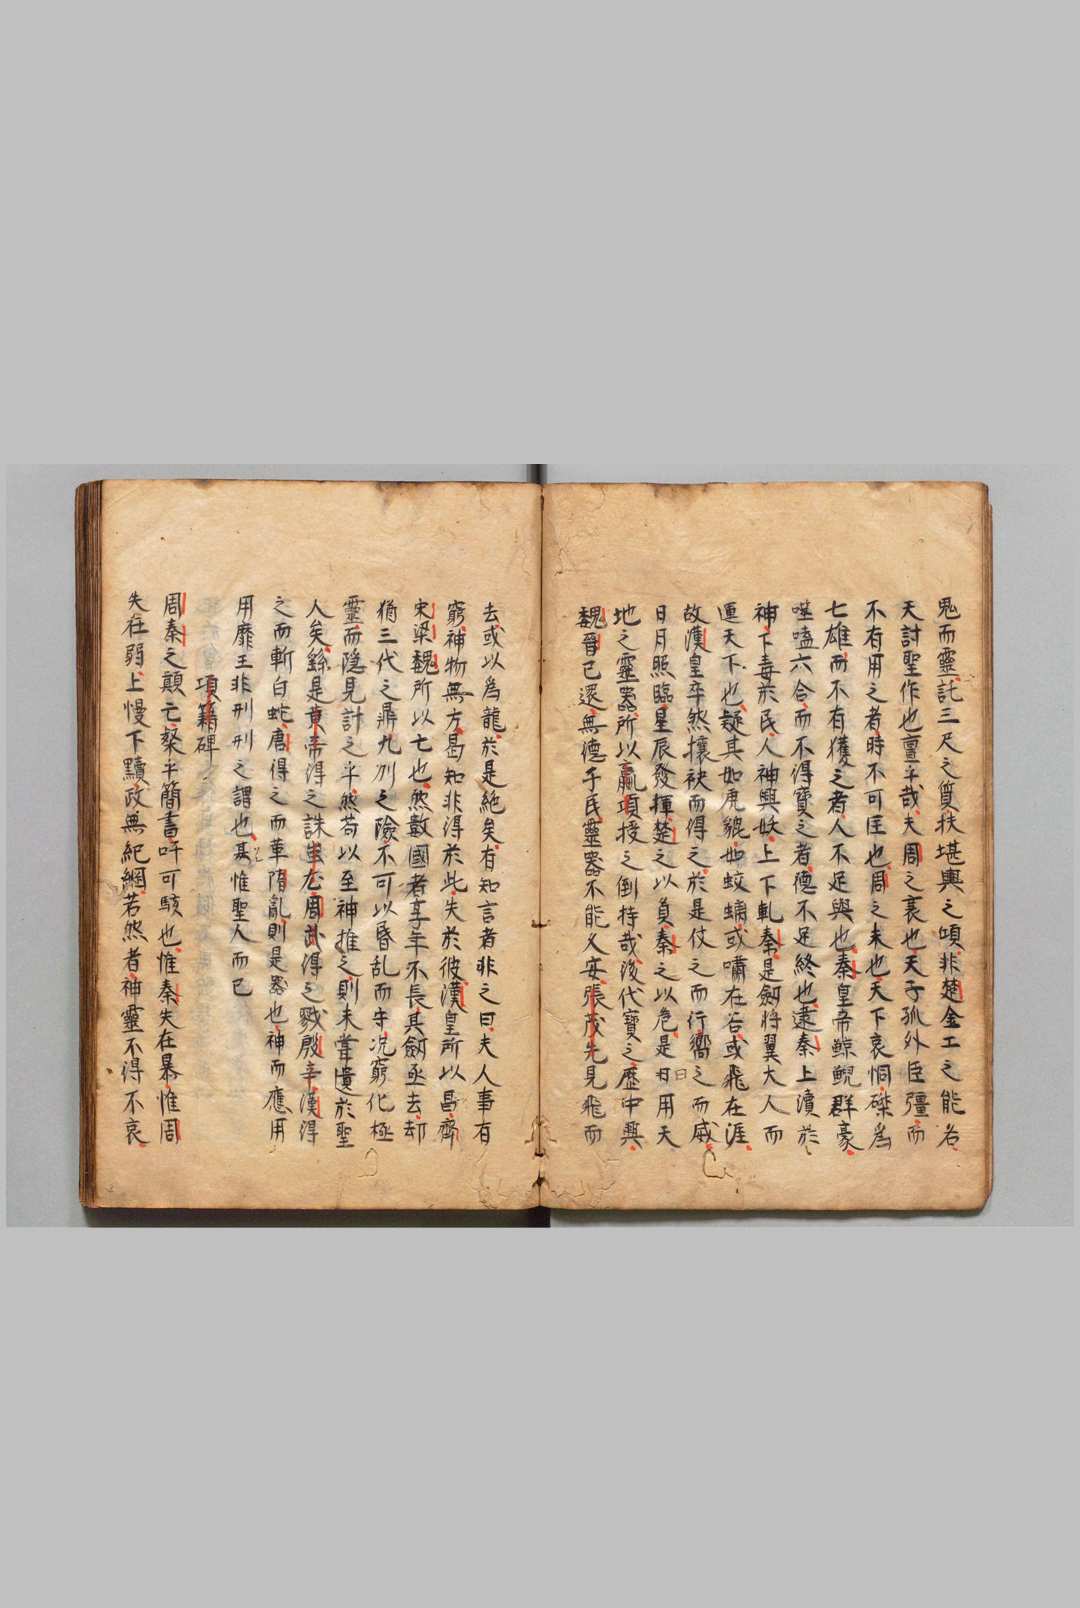 鬼而靈託三尺之質扶堪輿之頌非楚金工之能名
天討聖作也亶乎哉夫周之衰也天子孤外臣彊而
不有用之者時不可匡也周之末也天下哀恫磔為
七雄而不有獲之者人不足與也秦皇帝鯨鯢群豪
噬嗑六合而不得寶之者德不足終也遠秦上瀆於
神下毒於民人神興妖上下軋秦是劔將翼大人而
運天下也疑其如虎貔如蛟螭或嘯在谷或飛在涯
故漢皇卒然攘袂而得之於是仗之而行嚮之而威
日月照臨星辰發揮楚之以負秦之以危是日用天
地之靈器所以贏項授之倒持哉後代寶之歷中興
魏晉已還無德于民靈器不能久安張茂先見飛而
去或以為龍於是絕矣有知言者非之曰夫人事有
窮神物無方曷知非得於此失於彼漢皇所以昌齊
宋梁魏所以亡也然數國者享年不長其劔亟去却
猶三代之鼎九州之險不可以昏乱而守况窮化極
靈而隱見計之乎然苟以至神推之則未嘗遺於聖
人矣繇是黃帝得之誅蚩尤周武得之戮殷辛漢得
之而斬白蛇唐得之而革隋亂則是器也神而應用
用靡王非刑刑之謂也其惟聖人而已
項籍碑
周秦之顛亡槩乎簡書吁可駭也惟秦失在暴惟周
失在弱上慢下黷政無紀綱若然者神靈不得不哀